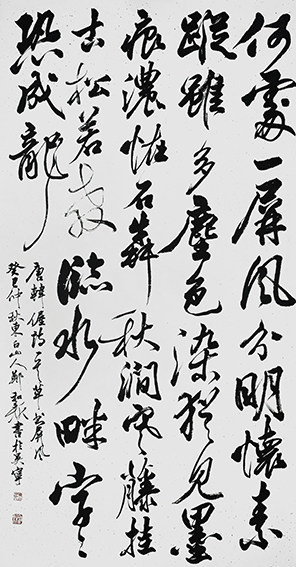 何處一屏風分明懷素
蹤雖多塵色染猶見墨
痕濃怪石奔秋澗寒藤挂
古松若教臨水畔字〻
恐成龍
唐韓偓詩一首草書屏風
癸巳仲秋東白山人鄭書於